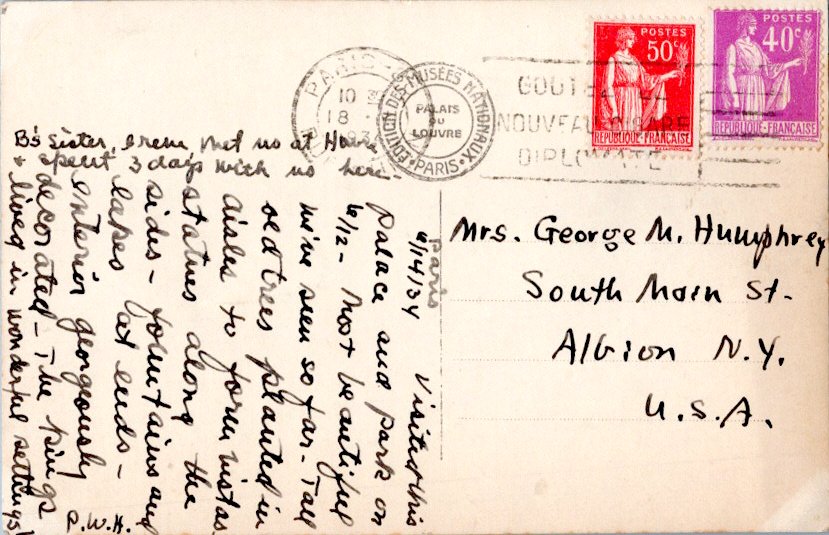 Paris
6/14/34 Visited this
palace and park on
6/12 - Most beautiful
we've seen so far - Tall
old trees planted in
aisles to form vistas
statues along the
sides - fountains and
lakes at ends -
Interior gorgeously
decorated - The kings
lived in wonderful settings!
P.W.H.
B's sister, Irene met us at Havre
& spent 3 days with us here -
Mrs. George M. Humphrey
South Main St.
Albion N.Y.
U.S.A.
PARIS
10
18
EDITION DES MUSÉES NATIONAUX
PALAIS
DU
LOUVRE
PARIS
GOUTEZ
NOUVEAU
DIPLOMATE
POSTES
50c
REPUBLIQUE-FRANCAISE
POSTES
40c
REPUBLIQUE-FRANCAISE